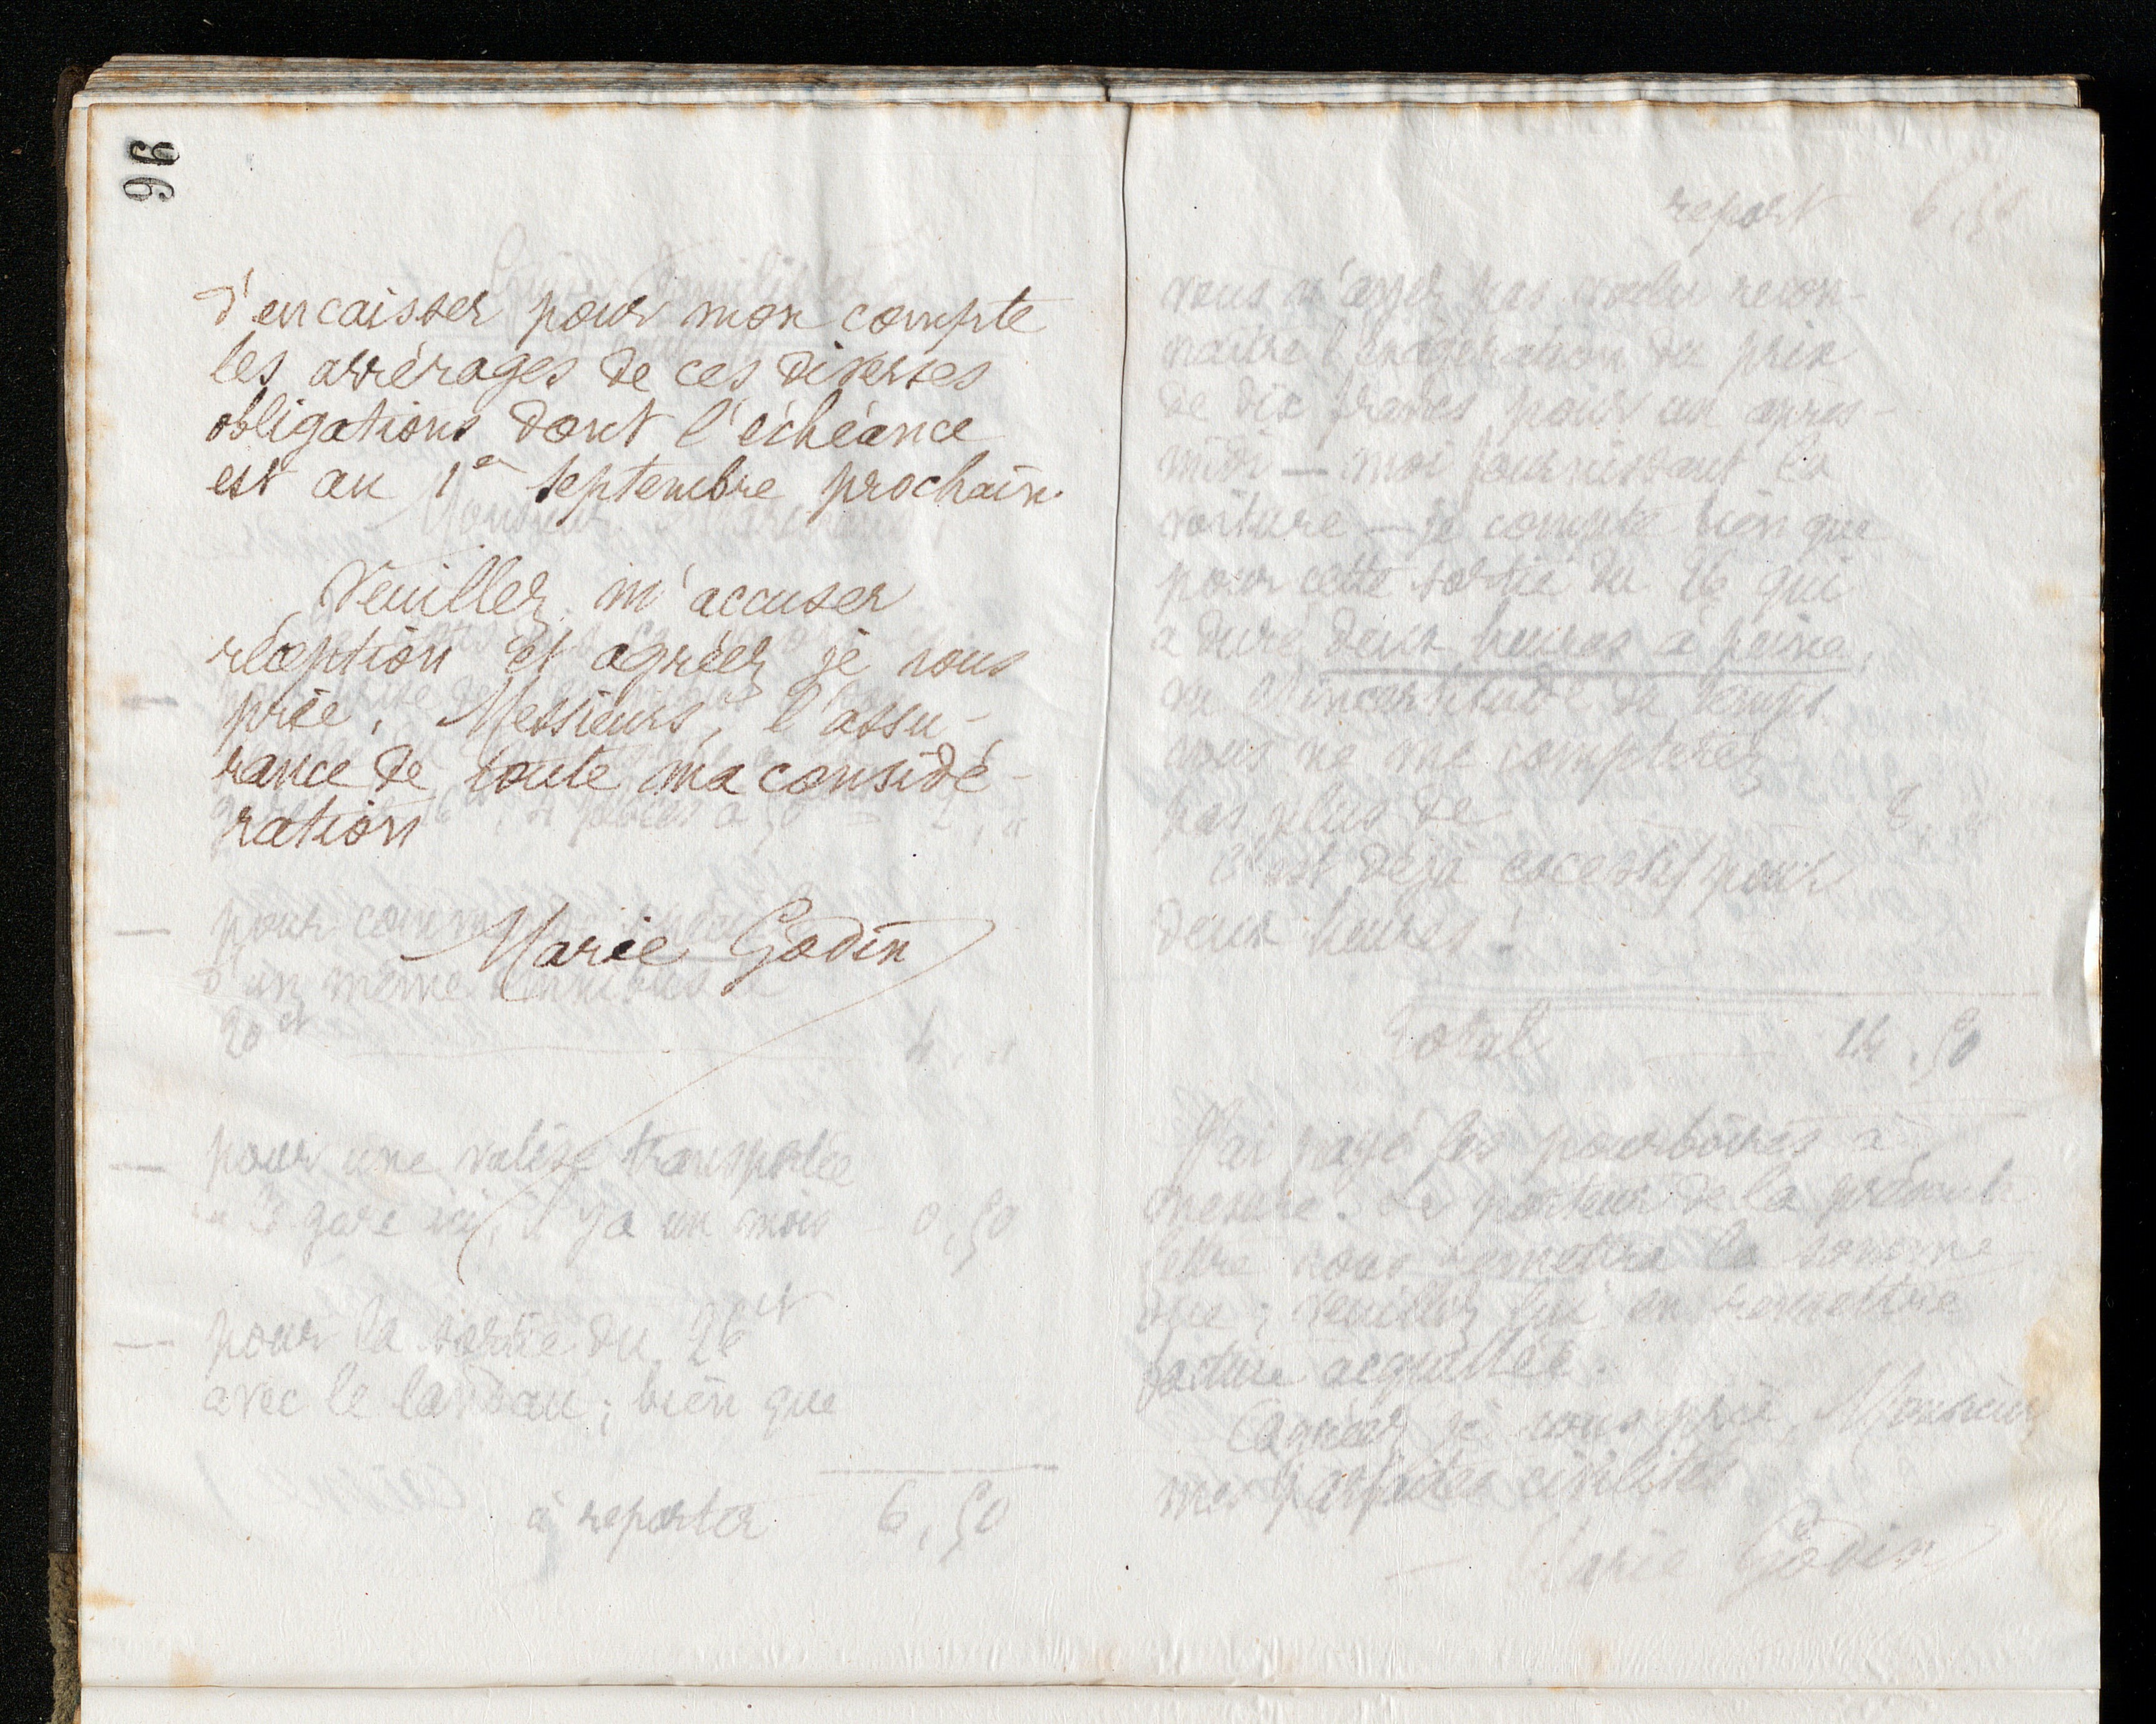 96
d'encaisser pour mon compte
les arrérages de ces diverses
obligations dont l'échéance
est au 1er septembre prochain.
Veuillez m'accuser
réception et agréer, je vous
prie, Messieurs, l'assu-
rance de toute ma considé-
ration
Marie Godin
pour
d'un même omnibus
20 ct 4, "
pour une valise transportée
gare ici, il y a un mois 0,50
pour la sortie du 26 ct
avec le landau; bien que
à reporter 6,50
report 6,50
vous n'ayez pas voulu recon-
naître l'exagération du prix
de dix francs pour un après-
midi — moi fournissant la
voiture — je compte bien que
pour cette sortie du 26 qui
a duré deux heures à peine,
vu l'incertitude du temps
vous ne me compterez
pas plus de 8, "
C'est déjà excessif pour
deux heures!
Total 14.50
J'ai payé les pourboires à
mesure. Le porteur de la présente
lettre vous remettra la somme
due; veuillez lui en remettre
facture acquittée.
Agréez je vous prie, Monsieur,
mes parfaites civilités
Marie Godin